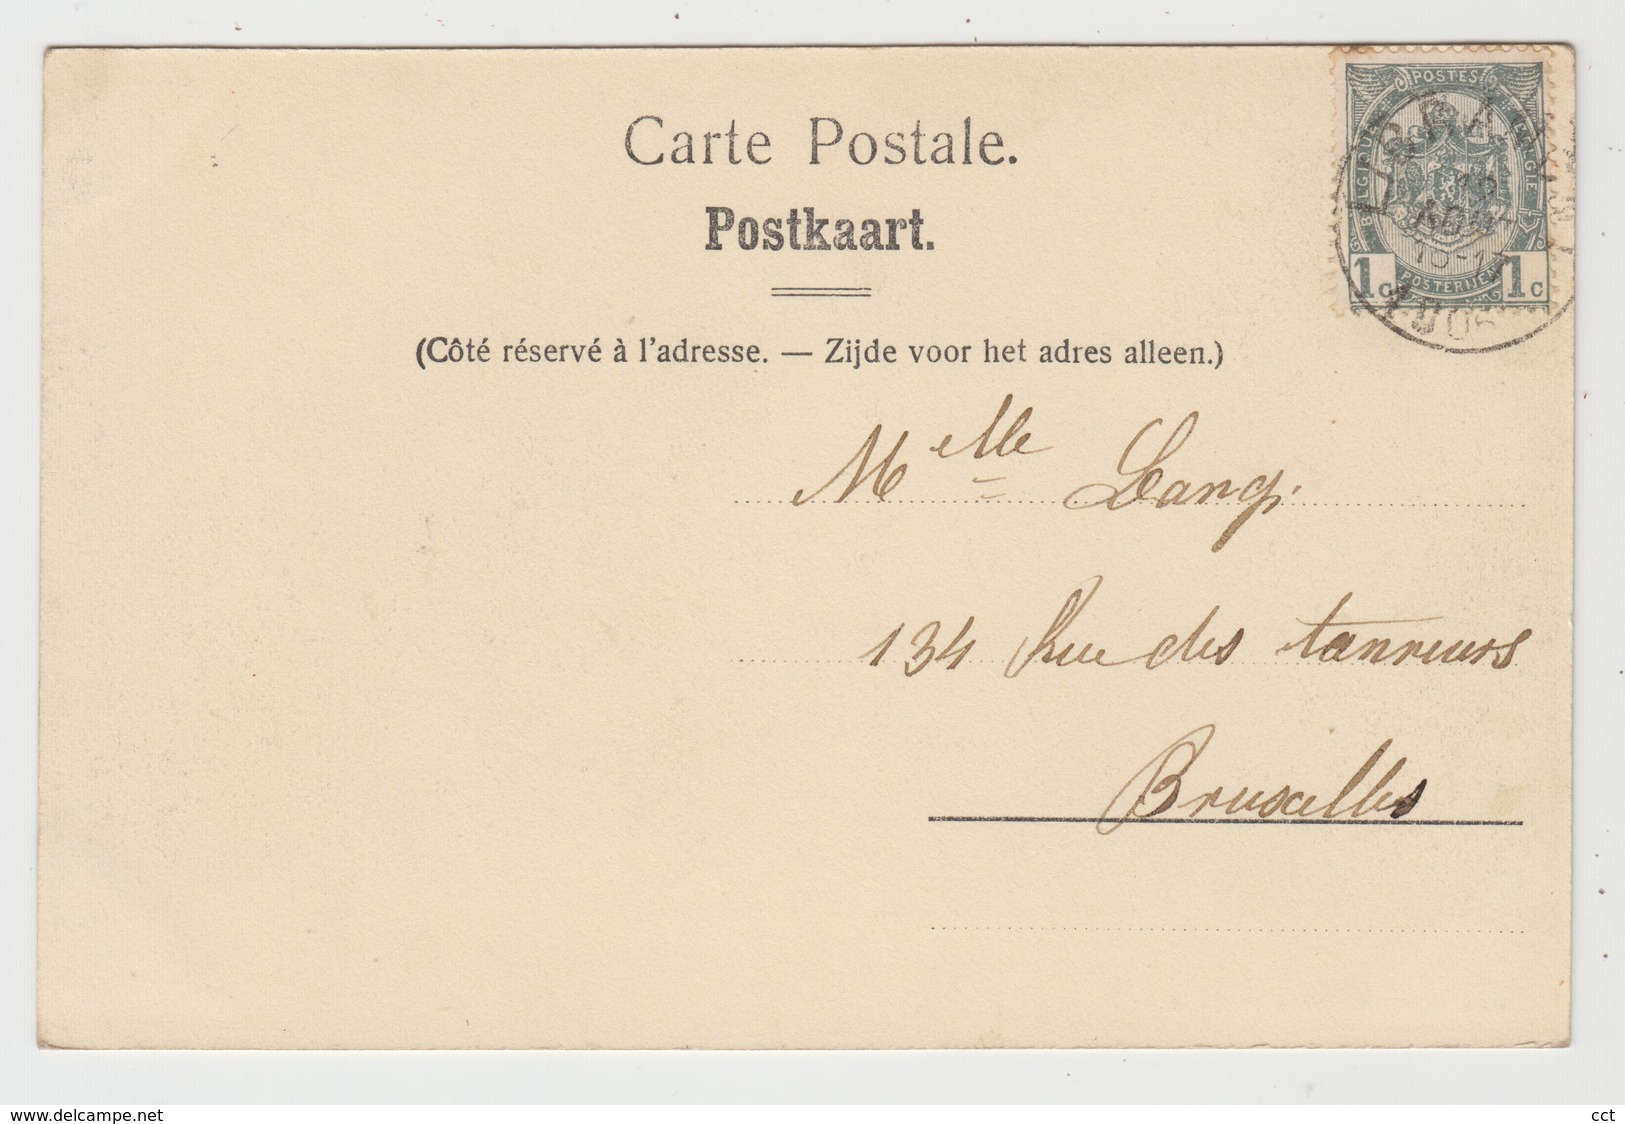 POSTES
BELGIQUE
BELGIE
POSTERIJEN
1c 1c
Carte Postale.
Postkaart.
(Côté réservé à l'adresse. — Zijde voor het adres alleen.)
Melle Lang.
134 Rue des tanneurs
Bruxelles
www.delcampe.net
cct